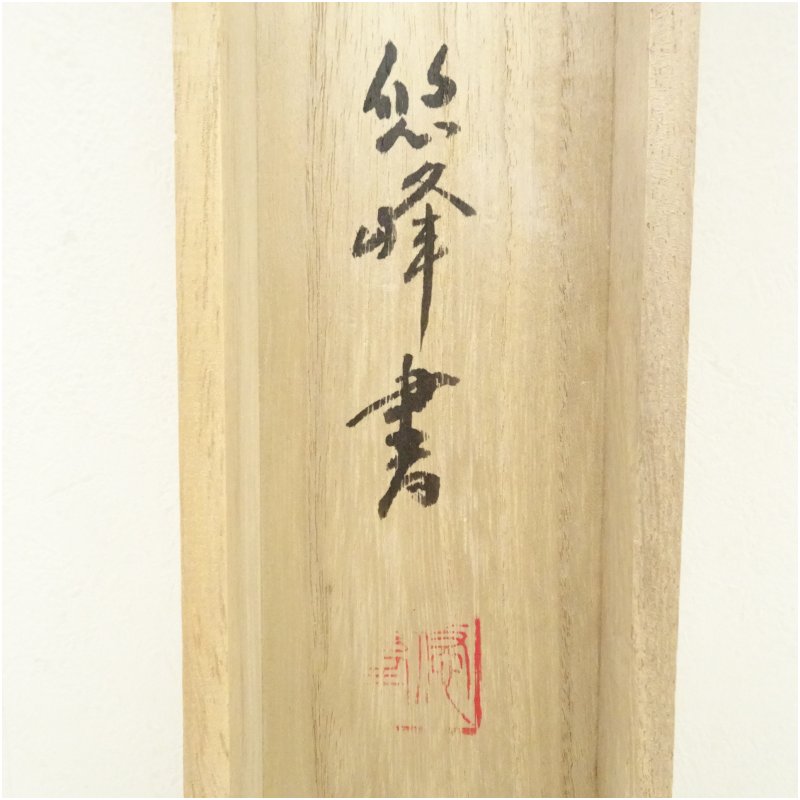 悠峰書